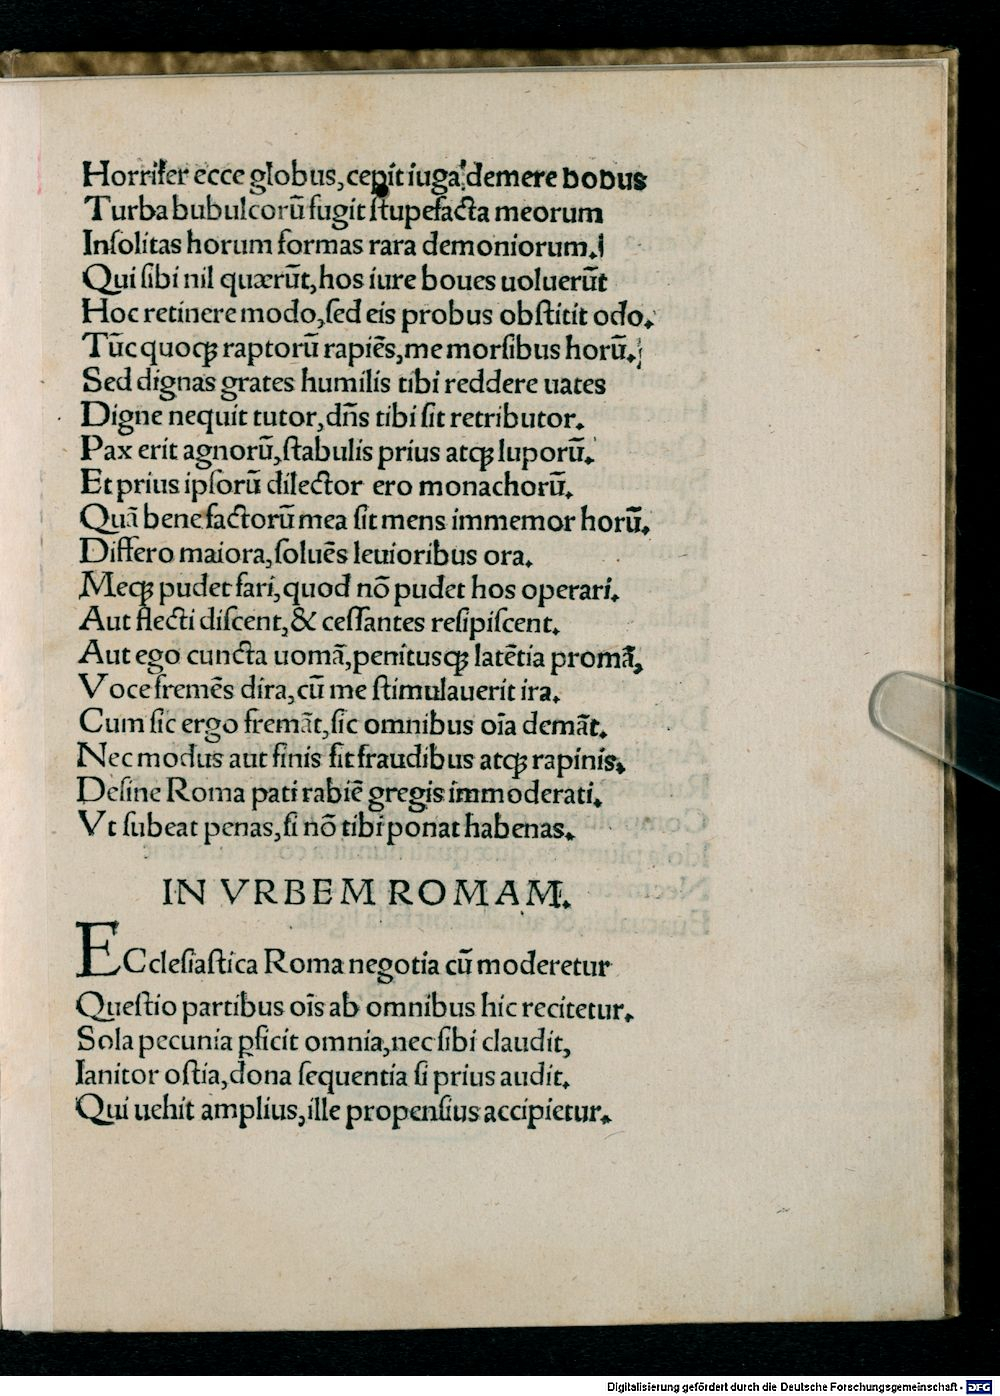 Horrifer ecce globus,cepit iuga demere bobus
Turba bubulcorū fugit ſtupefacta meorum
Inſolitas horum formas rara demoniorum.
Qui ſibi nil quærūt,hos iure boues uoluerūt
Hoc retinere modo,ſed eis probus obſtitit odo.
Tūc quoqꝫ raptorū rapiēs,me morſibus horū.
Sed dignas grates humilis tibi reddere uates
Digne nequit tutor,dn̄s tibi ſit retributor.
Pax erit agnorū,ſtabulis prius atqꝫ luporū.
Et prius ipſorū dilector ero monachorū.
Quā bene factorū mea ſit mens immemor horū.
Differo maiora,ſoluēs leuioribus ora.
Meqꝫ pudet fari,quod nō pudet hos operari.
Aut flecti diſcent,& ceſſantes reſipiſcent.
Aut ego cuncta uomā,penitusqꝫ latētia promā,
Voce fremēs dira,cū me ſtimulauerit ira.
Cum ſic ergo fremāt,ſic omnibus oīa demāt.
Nec modus aut finis fit fraudibus atqꝫ rapinis.
Deſine Roma pati rabiē gregis immoderati.
Vt ſubeat penas,ſi nō tibi ponat habenas.
IN VRBEM ROMAM.
ECcleſiaſtica Roma negotia cū moderetur
Queſtio partibus oīs ab omnibus hic recitetur.
Sola pecunia ꝑficit omnia,nec ſibi claudit,
Ianitor oſtia,dona ſequentia ſi prius audit.
Qui uehit amplius,ille propenſius accipietur.
Digitalisierung gefördert durch die Deutsche Forschungsgemeinschaft - DFG